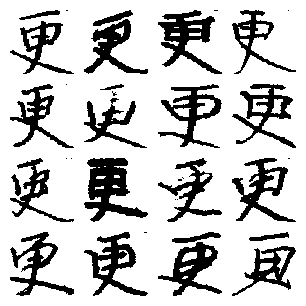 更更更更
更更更更
更更更更
更更更更